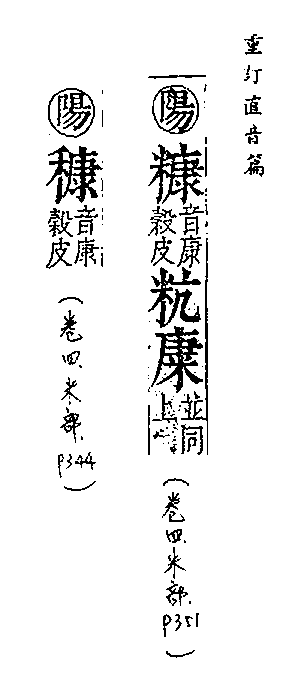 重訂直音篇
陽
糠
音康
穀皮
粇
並同
上
(卷四、米部、P351)
陽
穅
音康
穀皮
(卷四、禾部、P344)